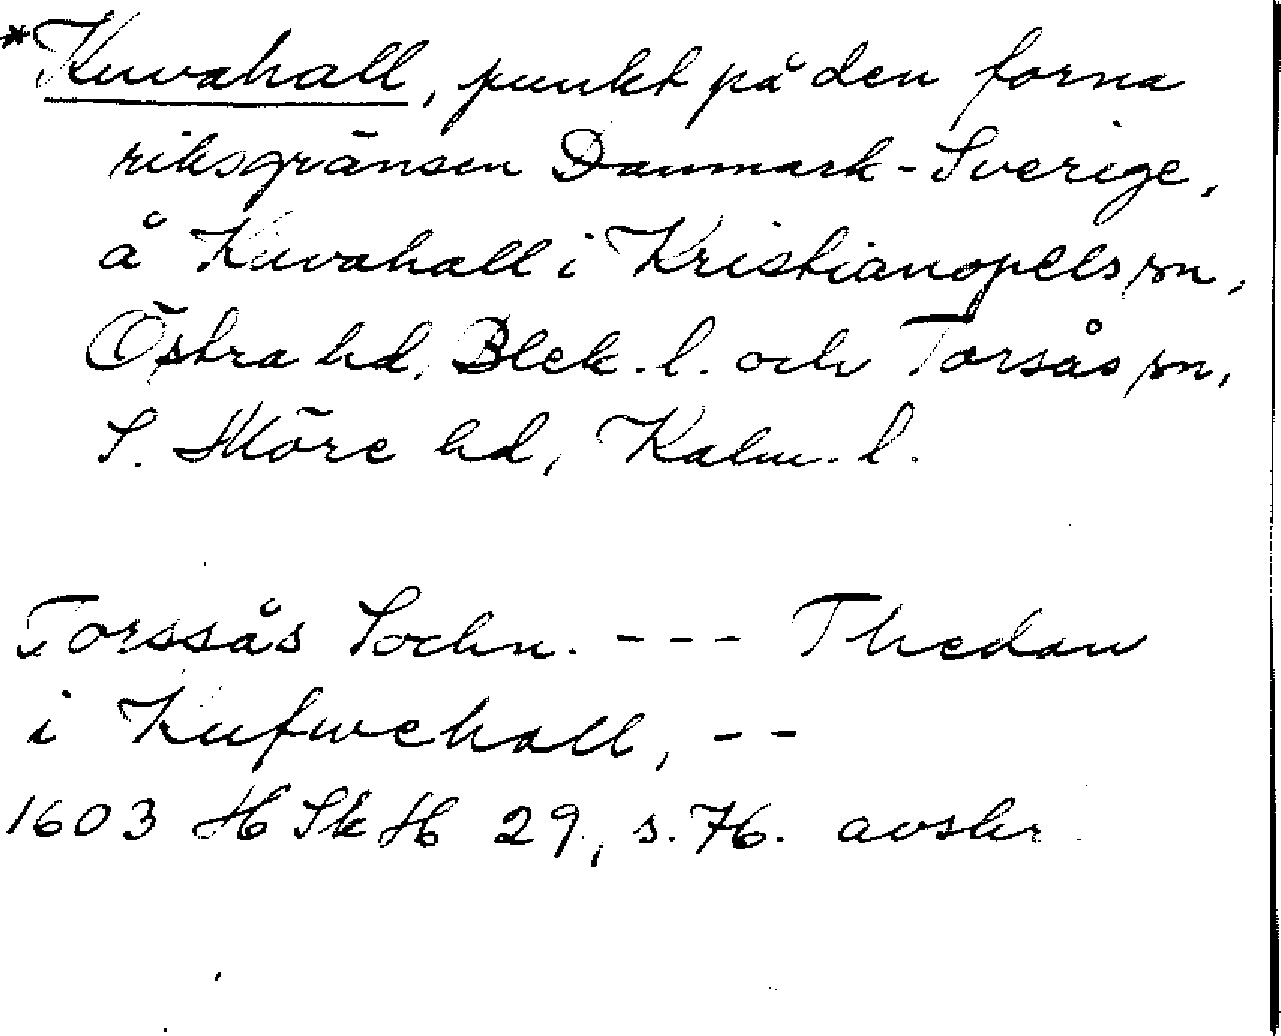 *Kuvahall, punkt på den forna
riksgränsen Danmark-Sverige,
å Kuvahall i Kristianopels sn,
Östra hd, Blek. l. och Torsås sn,
S. Möre hd, Kalm. l.
Torssås Sochn. --- Thedan
i Kufwehall, --
1603 HSkH 29, s. 76. avskr.